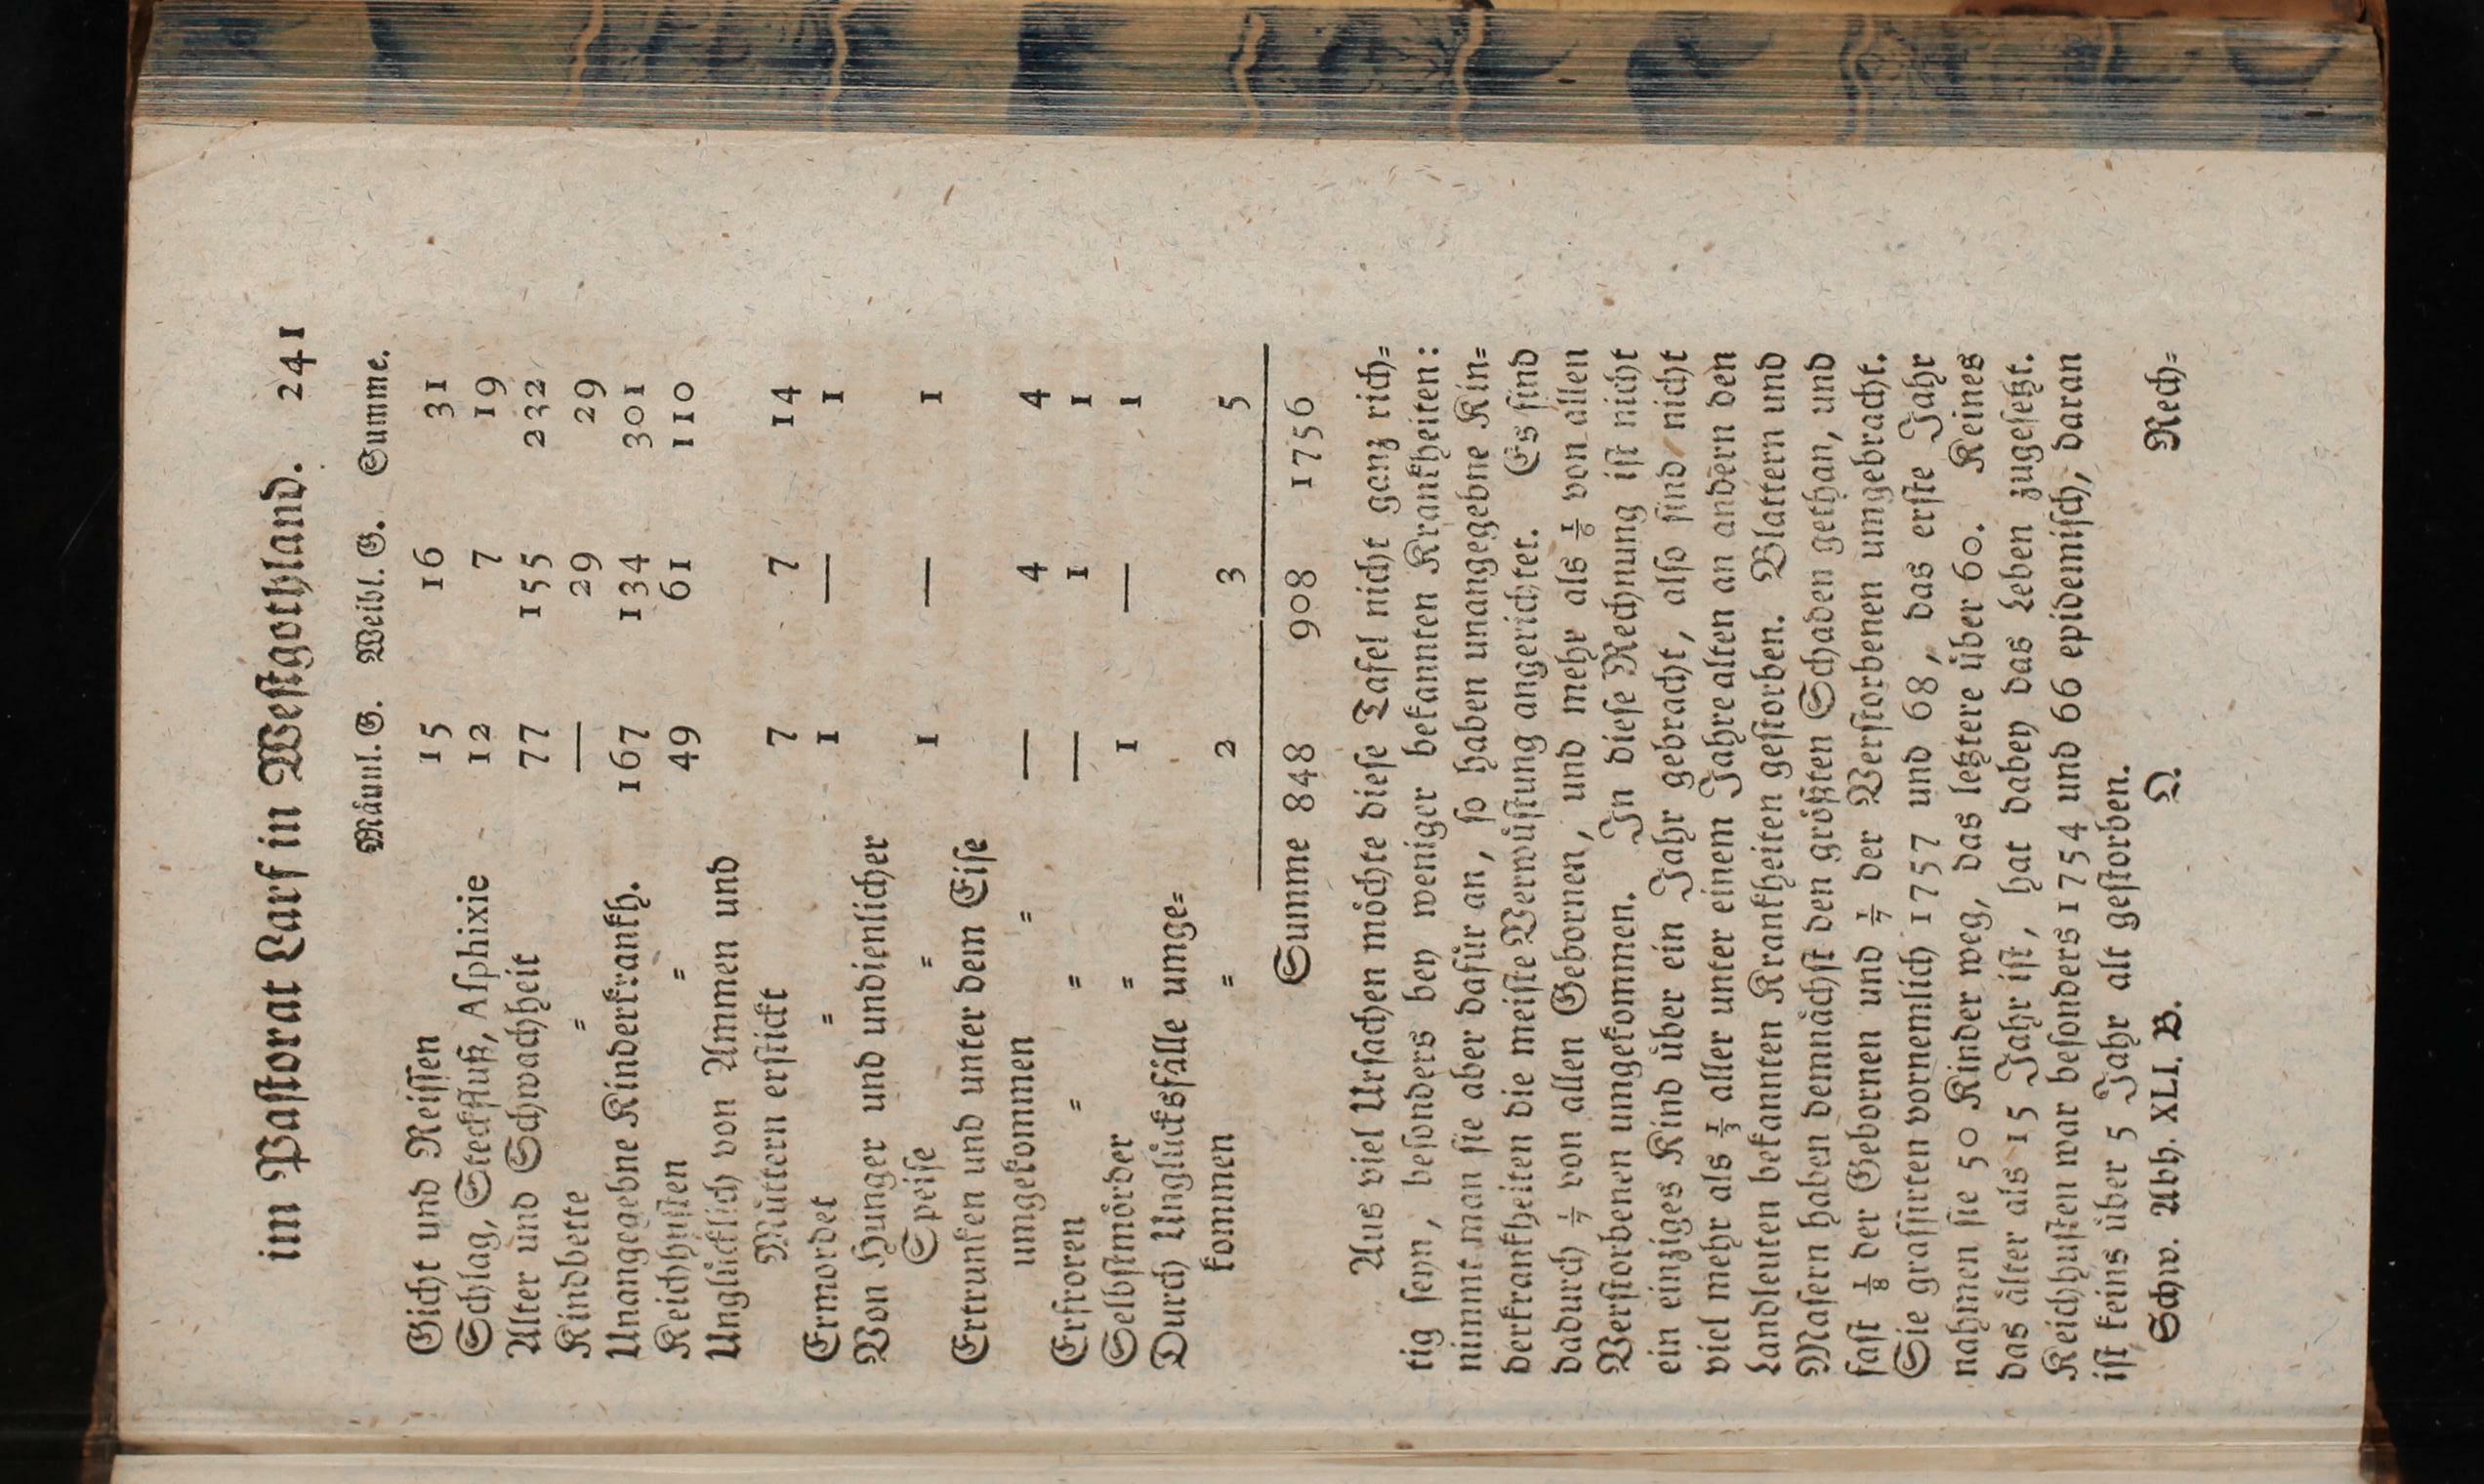 im Paſtorat Larf in Weſtgothland. 241
Männl. G. Weibl. G. Summe.
Gicht und Reiſſen 15 16 31
Schlag, Steckfluß, Aſphixie 12 7 19
Alter und Schwachheit 77 155 232
Kindbette = — 29 29
Unangegebne Kinderkrankh. 167 134 301
Keichhuſten = 49 61 110
Unglücklich von Ammen und
Müttern erſtickt 7 7 14
Ermordet = 1 — 1
Von Hunger und undienlicher
Speiſe = 1 — 1
Ertrunken und unter dem Eiſe
umgekommen = — 4 4
Erfroren = = — 1 1
Selbſtmörder = 1 — 1
Durch Unglücksfälle umge=
kommen = 2 3 5
Summe 848 908 1756
Aus viel Urſachen möchte dieſe Tafel nicht ganz rich=
tig ſeyn, beſonders bey weniger bekannten Krankheiten:
nimmt man ſie aber dafür an, ſo haben unangegebne Kin=
derkrankheiten die meiſte Verwüſtung angerichtet. Es ſind
dadurch 1/7 von allen Gebornen, und mehr als 1/6 von allen
Verſtorbenen umgekommen. In dieſe Rechnung iſt nicht
ein einziges Kind über ein Jahr gebracht, alſo ſind nicht
viel mehr als 1/3 aller unter einem Jahre alten an andern den
Landleuten bekannten Krankheiten geſtorben. Blattern und
Maſern haben demnächſt den größten Schaden gethan, und
faſt 1/8 der Gebornen und 1/7 der Verſtorbenen umgebracht.
Sie graſſirten vornemlich 1757 und 68, das erſte Jahr
nahmen ſie 50 Kinder weg, das letztere über 60. Keines
das älter als 15 Jahr iſt, hat dabey das Leben zugeſetzt.
Keichhuſten war beſonders 1754 und 66 epidemiſch, daran
iſt keins über 5 Jahr alt geſtorben.
Schw. Abh. XLI. B. Q Rech=